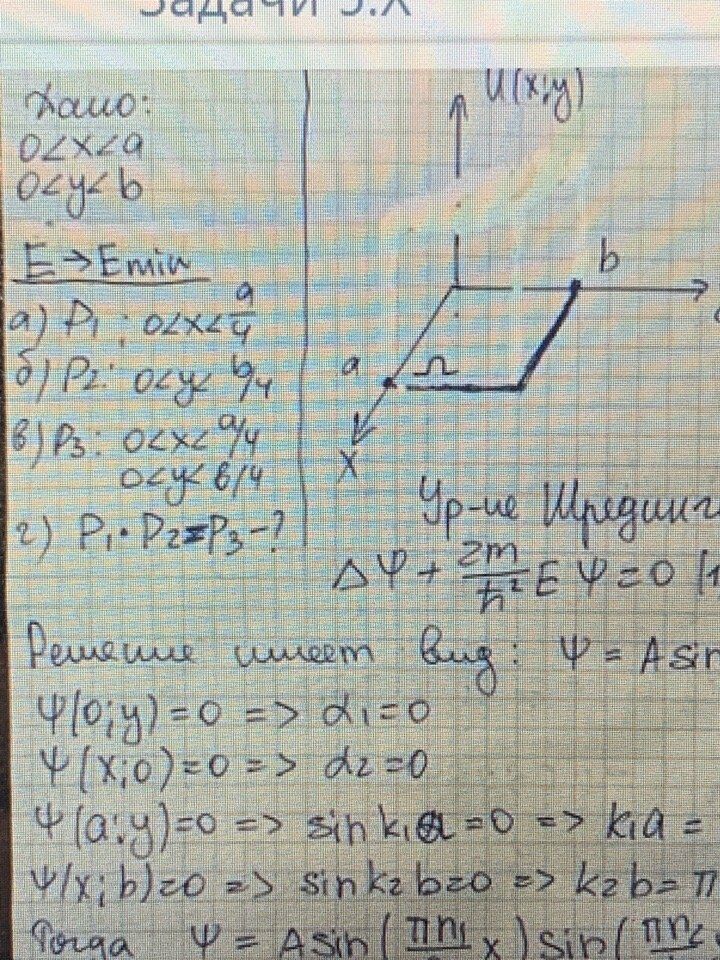 Задачи 5.X
Дано:
0<x<a
0<y<b
E→Emin
а) P₁: 0<x<a/4
б) P₂: 0<y<b/4
в) P₃: 0<x<a/4
0<y<b/4
г) P₁·P₂=P₃-?
U(x;y)
b
a
Ω
X
Ур-ие Шрединг
Δψ + 2m/ħ² E ψ = 0 (1
Решение имеет вид: ψ = A sin
ψ(0;y)=0 => α₁=0
ψ(x;0)=0 => α₂=0
ψ(a;y)=0 => sin k₁a=0 => k₁a =
ψ(x;b)=0 => sin k₂b=0 => k₂b= π
Тогда ψ = A sin(πn₁ x) sin(πn₂